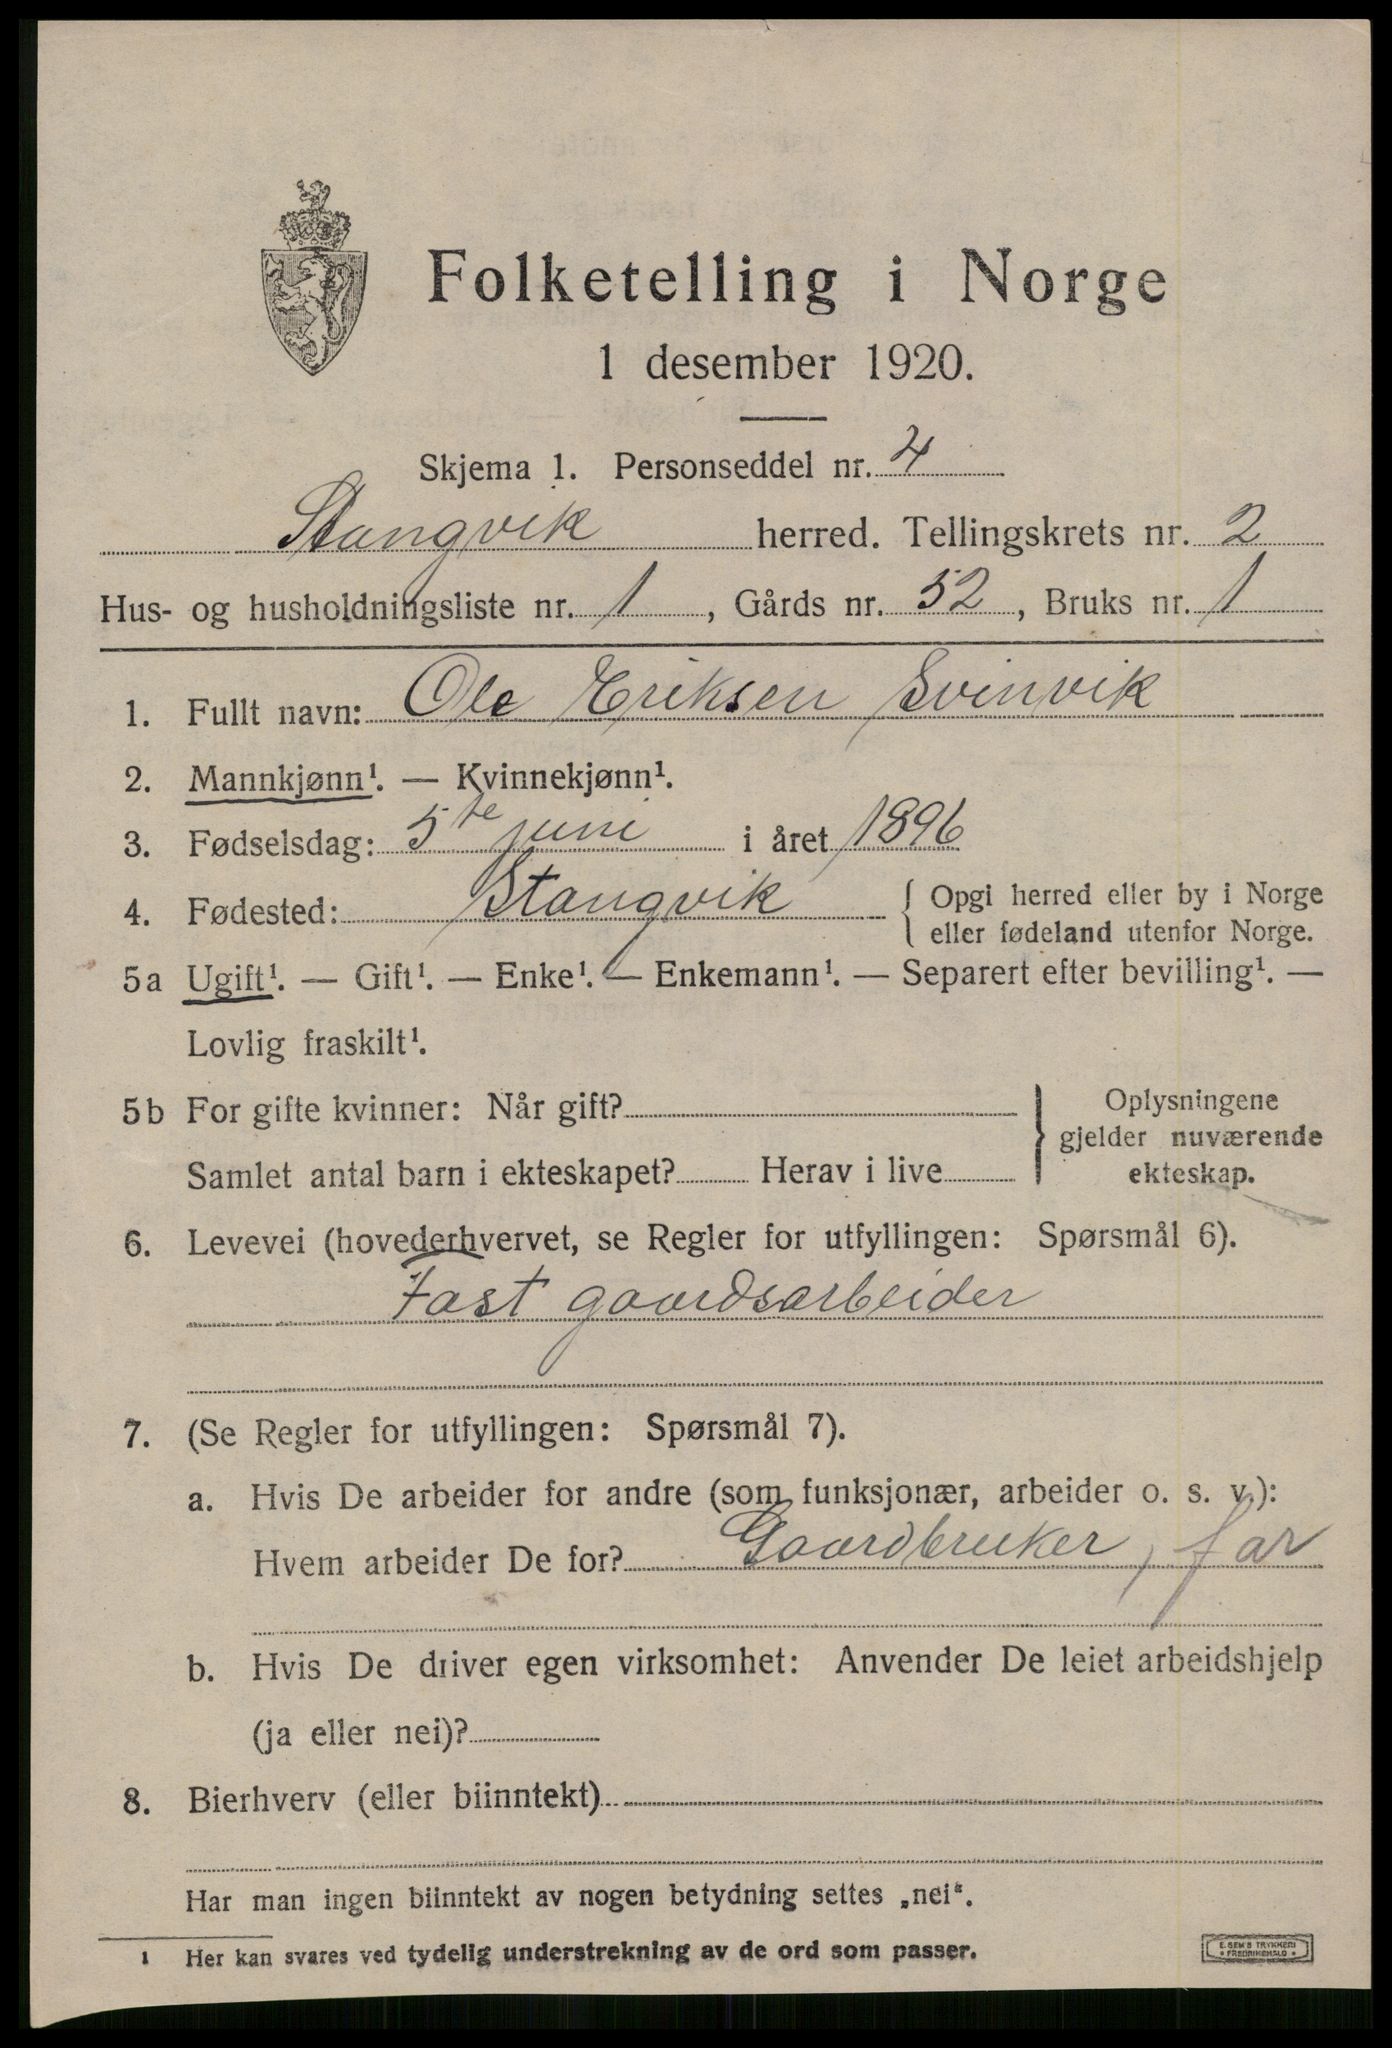 Folketelling i Norge
1 desember 1920.
Skjema 1. Personseddel nr. 4
Stangvik herred. Tellingskrets nr. 2
Hus- og husholdningsliste nr. 1, Gårds nr. 52, Bruks nr. 1
1. Fullt navn: Ole Eriksen Svinvik
2. Mannkjønn¹. — Kvinnekjønn¹.
3. Fødselsdag: 5te juni i året 1896
4. Fødested: Stangvik { Opgi herred eller by i Norge
eller fødeland utenfor Norge.
5a Ugift¹. — Gift¹. — Enke¹. — Enkemann¹. — Separert efter bevilling¹. —
Lovlig fraskilt¹.
5b For gifte kvinner: Når gift? } Oplysningene
gjelder nuværende
Samlet antal barn i ekteskapet? Herav i live ekteskap.
6. Levevei (hovederhvervet, se Regler for utfyllingen: Spørsmål 6).
Fast gaardsarbeider
7. (Se Regler for utfyllingen: Spørsmål 7).
a. Hvis De arbeider for andre (som funksjonær, arbeider o. s. v.):
Hvem arbeider De for? Gaardbruker, far
b. Hvis De driver egen virksomhet: Anvender De leiet arbeidshjelp
(ja eller nei)?
8. Bierhverv (eller biinntekt)
Har man ingen biinntekt av nogen betydning settes „nei“.
1 Her kan svares ved tydelig understrekning av de ord som passer.
E. SEM'S TRYKKERI
• FREDRIKSHALD •